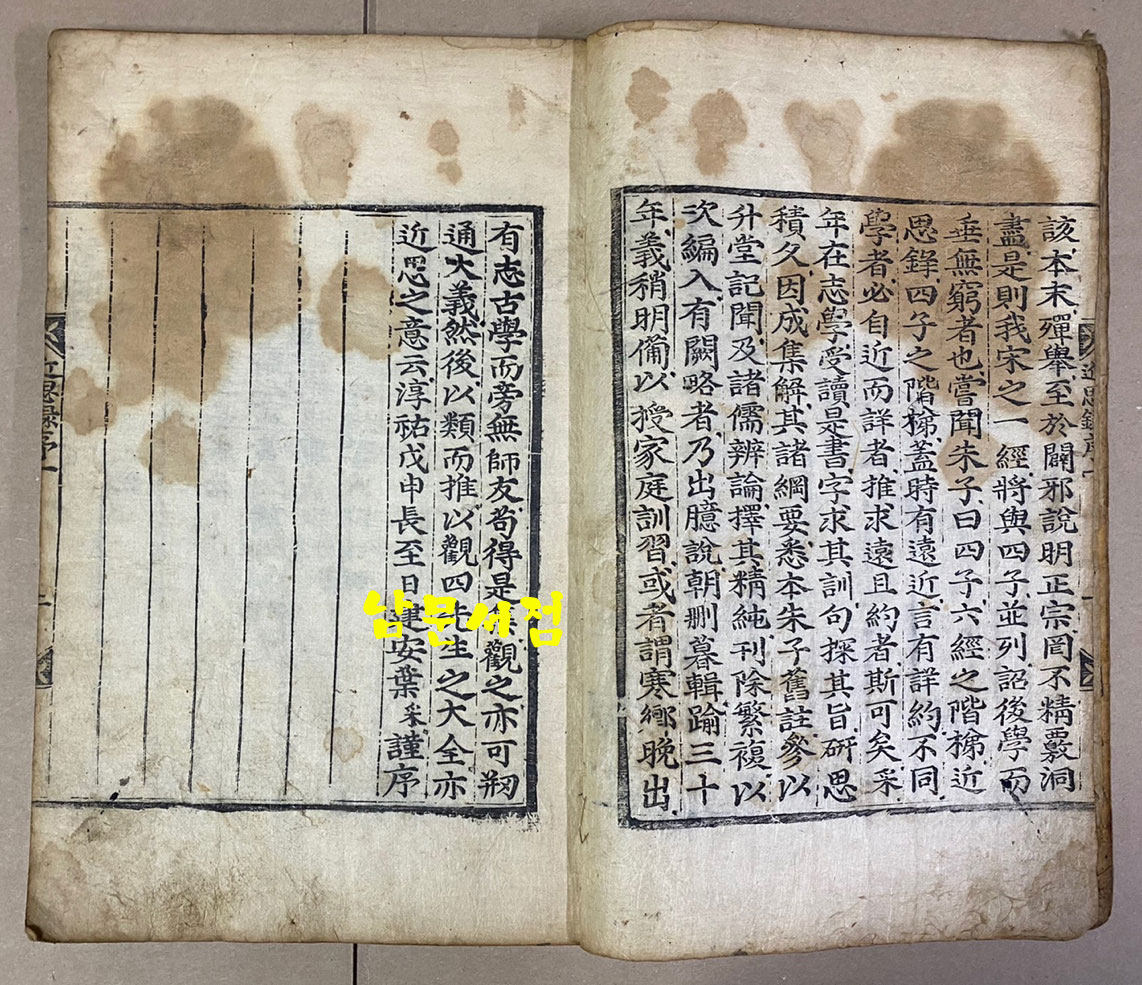 該本末殫舉至於闢邪說明正宗罔不精覈洞
盡是則我宋之一經將與四子並列詔後學而
垂無窮者也嘗聞朱子曰四子六經之階梯近
思錄四子之階梯蓋時有遠近言有詳約不同
學者必自近而詳者推求遠且約者斯可矣采
年在志學受讀是書字求其訓句探其旨硏思
積久因成集解其諸綱要悉本朱子舊註參以
升堂記聞及諸儒辨論擇其精純刊除繁複以
次編入有闕略者乃出臆說朝刪暮輯踰三十
年義稍明備以授家庭訓習或者謂寒鄕晚出
近思錄序
有志古學而旁無師友苟得是集觀之亦可刱
通大義然後以類而推以觀四先生之大全亦
近思之意云淳祐戊申長至日建安葉采謹序
近思錄序
남문서점